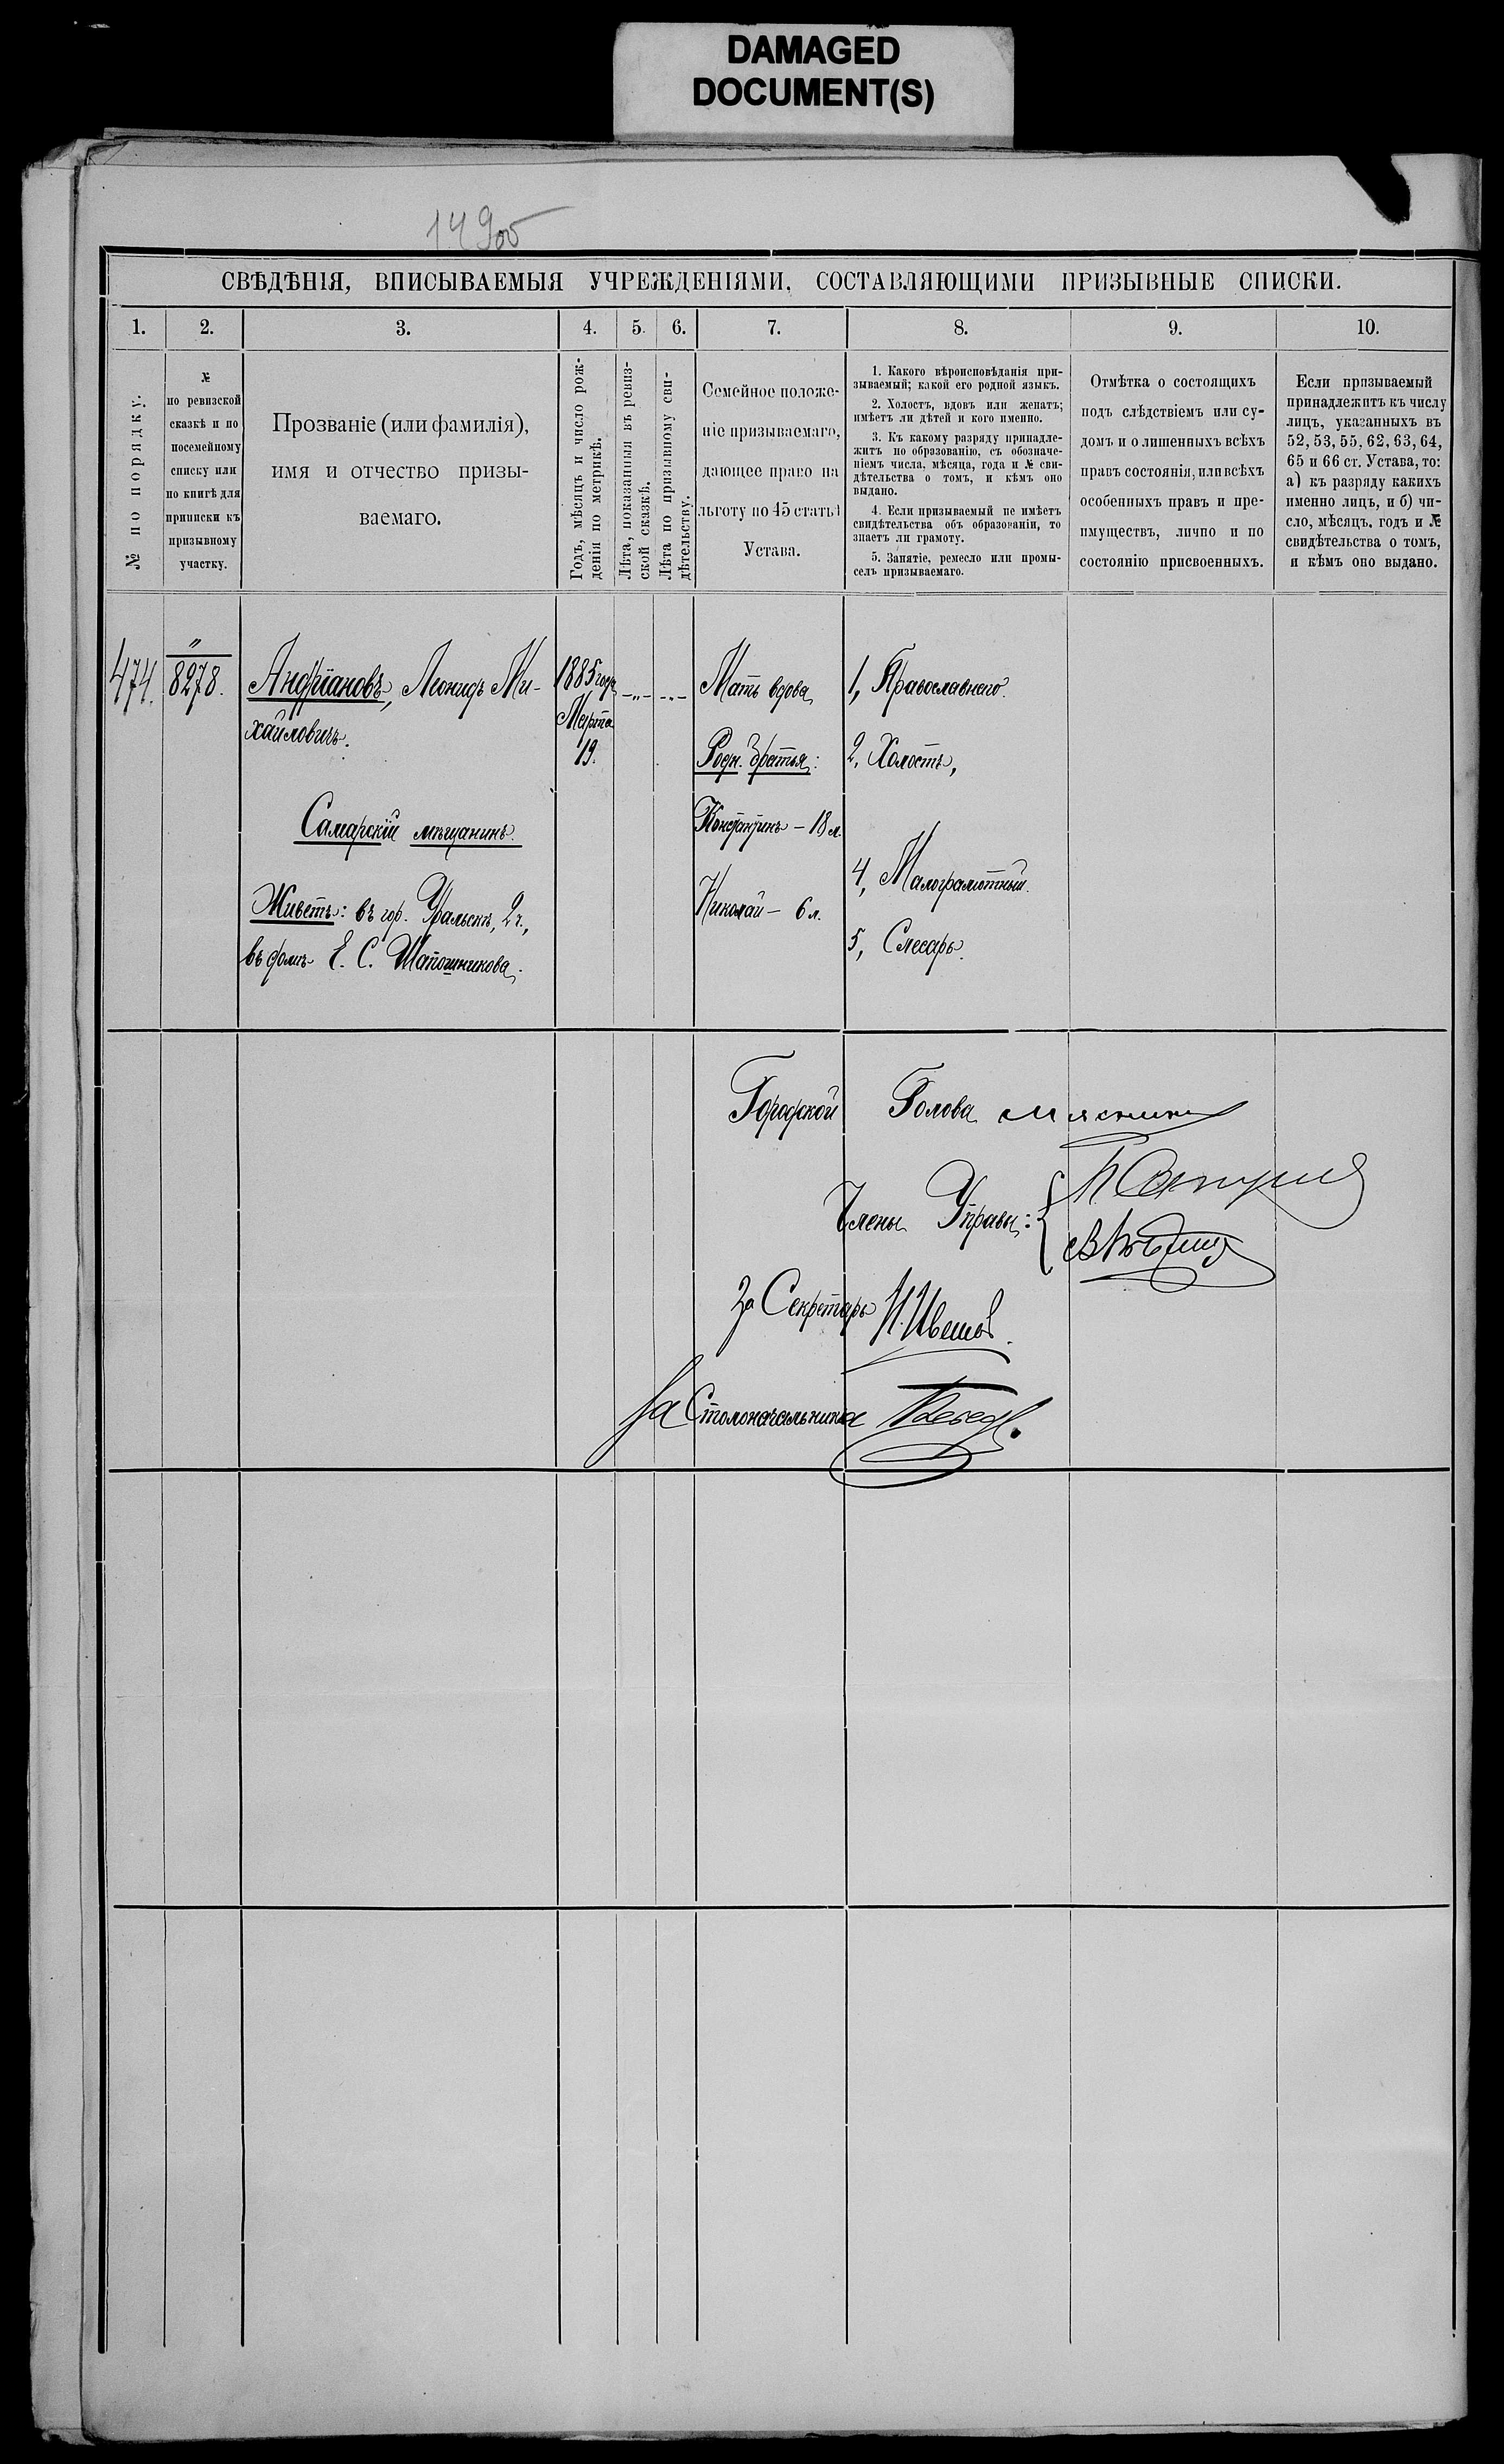 DAMAGED
DOCUMENT(S)
СВѢДѢНІЯ, ВПИСЫВАЕМЫЯ УЧРЕЖДЕНІЯМИ, СОСТАВЛЯЮЩИМИ ПРИЗЫВНЫЕ СПИСКИ.
1. 2. 3. 4. 5. 6. 7. 8. 9. 10.
№ по порядку.
№
по ревизской
сказкѣ и по
посемейному
списку или
по книгѣ для
приписки къ
призывному
участку.
Прозваніе (или фамилія),
имя и отчество призы-
ваемаго.
Годъ, мѣсяцъ и число рож-
денія по метрикѣ.
Лѣта, показанныя въ ревиз-
ской сказкѣ.
Лѣта по призывному сви-
дѣтельству.
Семейное положе-
ніе призываемаго,
дающее право на
льготу по 45 статьѣ
Устава.
1. Какого вѣроисповѣданія при-
зываемый; какой его родной языкъ.
2. Холостъ, вдовъ или женатъ;
имѣетъ ли дѣтей и кого именно.
3. Къ какому разряду принадле-
житъ по образованію, съ обозначе-
ніемъ числа, мѣсяца, года и № сви-
дѣтельства о томъ, и кѣмъ оно
выдано.
4. Если призываемый не имѣетъ
свидѣтельства объ образованіи, то
знаетъ ли грамоту.
5. Занятіе, ремесло или промы-
селъ призываемаго.
Отмѣтка о состоящихъ
подъ слѣдствіемъ или су-
домъ и о лишенныхъ всѣхъ
правъ состоянія, или всѣхъ
особенныхъ правъ и пре-
имуществъ, лично и по
состоянію присвоенныхъ.
Если призываемый
принадлежитъ къ числу
лицъ, указанныхъ въ
52, 53, 55, 62, 63, 64,
65 и 66 ст. Устава, то:
а) къ разряду какихъ
именно лицъ, и б) чи-
сло, мѣсяцъ, годъ и №
свидѣтельства о томъ,
и кѣмъ оно выдано.
474.
"
8278.
Андріановъ, Леонидъ Ми-
хайловичъ.
Самарскій мѣщанинъ.
Живетъ: въ гор. Уральскѣ, 2 ч.,
въ домѣ Е. С. Шапошникова.
1885 года
Марта
19.
-„-
-„-
Мать вдова,
Родн. братья:
Константинъ – 18 л.
Николай – 6 л.
1, Православнаго.
2, Холостъ,
4, Малограмотный.
5, Слесарь.
Городской Голова
Члены Управы:
За Секретаря
За Столоначальника